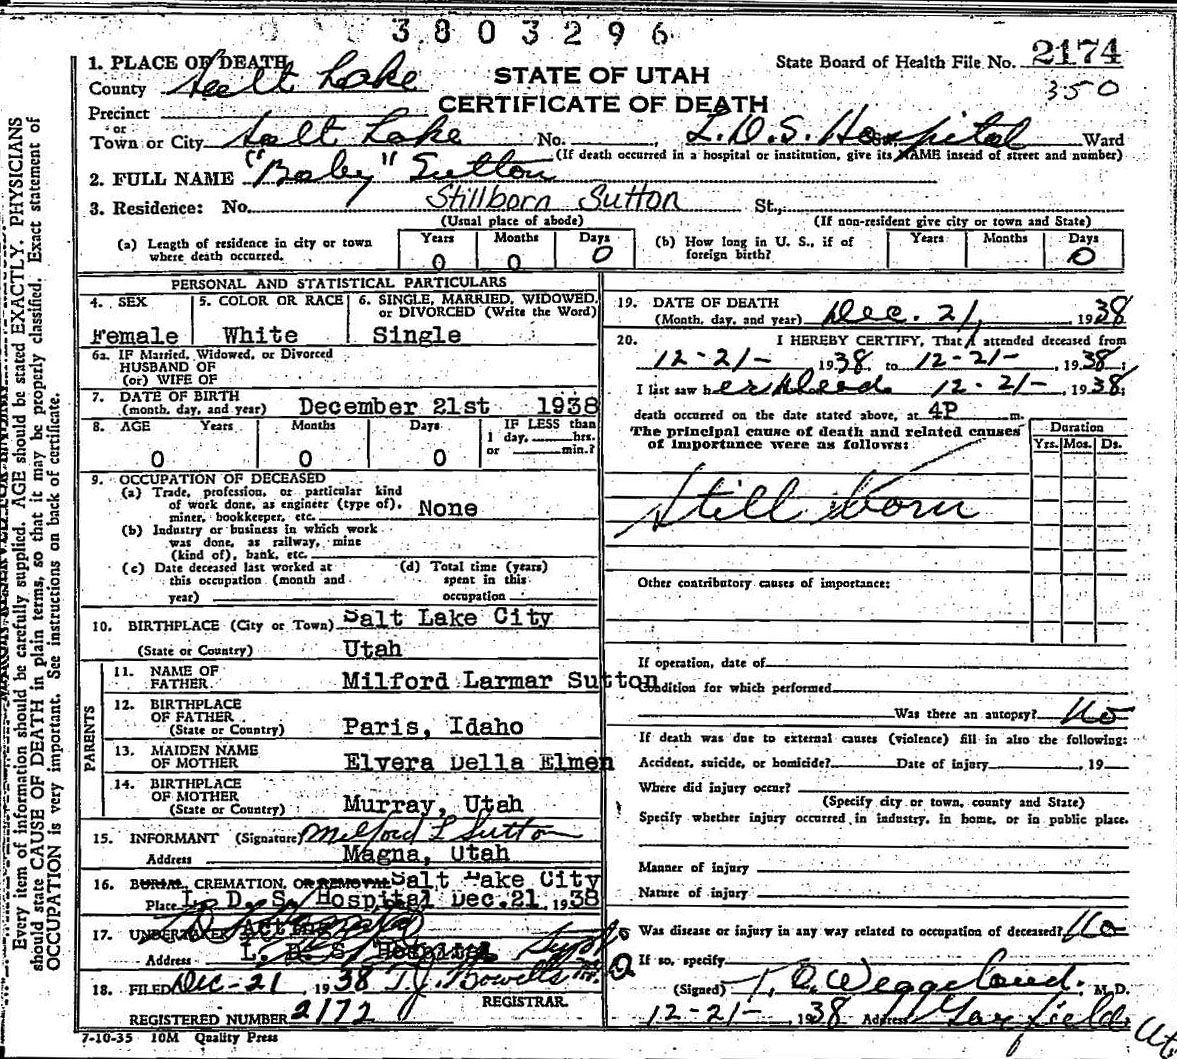 3803296
1. PLACE OF DEATH
County Salt Lake
STATE OF UTAH
CERTIFICATE OF DEATH
State Board of Health File No. 2174
350
Precinct
or
Town or City Salt Lake No. L.D.S. Hospital Ward
(If death occurred in a hospital or institution, give its NAME insead of street and number)
2. FULL NAME "Baby" Sutton
3. Residence: No. Stillborn Sutton St.,
(Usual place of abode) (If non-resident give city or town and State)
(a) Length of residence in city or town where death occurred. Years 0 Months 0 Days 0
(b) How long in U. S., if of foreign birth? Years Months Days 0
PERSONAL AND STATISTICAL PARTICULARS
4. SEX 5. COLOR OR RACE 6. SINGLE, MARRIED, WIDOWED, or DIVORCED (Write the Word)
Female White Single
6a. IF Married, Widowed, or Divorced
HUSBAND OF
(or) WIFE OF
7. DATE OF BIRTH
(month, day, and year) December 21st 1938
8. AGE Years Months Days IF LESS than
1 day, hrs.
or min.?
0 0 0
9. OCCUPATION OF DECEASED
(a) Trade, profession, or particular kind
of work done, as engineer (type of),
miner, bookkeeper, etc. None
(b) Industry or business in which work
was done, as railway, mine
(kind of), bank, etc.
(c) Date deceased last worked at
this occupation (month and
year)
(d) Total time (years)
spent in this
occupation
10. BIRTHPLACE (City or Town) Salt Lake City
(State or Country) Utah
PARENTS
11. NAME OF
FATHER Milford Larmar Sutton
12. BIRTHPLACE
OF FATHER
(State or Country) Paris, Idaho
13. MAIDEN NAME
OF MOTHER Elvera Della Elmen
14. BIRTHPLACE
OF MOTHER
(State or Country) Murray, Utah
15. INFORMANT (Signature) Milford L Sutton
Address Magna, Utah
16. BURIAL, CREMATION, OR REMOVAL Salt Lake City
Place L. D. S. Hospital Dec. 21, 1938
17. UNDERTAKER Acting
Address L. D. S. Hospital
18. FILED Dec-21, 1938 T.J. Howells
REGISTRAR.
REGISTERED NUMBER 2172
7-10-35 10M Quality Press
19. DATE OF DEATH
(Month, day, and year) Dec. 21, 1938
20. I HEREBY CERTIFY, That I attended deceased from
12-21-, 1938, to 12-21-, 1938;
I last saw her dead 12-21-, 1938;
death occurred on the date stated above, at 4P m.
The principal cause of death and related causes
of importance were as follows:
Duration
Yrs. Mos. Ds.
Still born
Other contributory causes of importance:
If operation, date of
Condition for which performed
Was there an autopsy? No
If death was due to external causes (violence) fill in also the following:
Accident, suicide, or homicide? Date of injury , 19
Where did injury occur?
(Specify city or town, county and State)
Specify whether injury occurred in industry, in home, or in public place.
Manner of injury
Nature of injury
Was disease or injury in any way related to occupation of deceased? No
If so, specify
(Signed) T. O. Weggeland. M. D.
12-21-, 1938 Address Garfield, Ut
Every item of information should be carefully supplied. AGE should be stated EXACTLY. PHYSICIANS
should state CAUSE OF DEATH in plain terms, so that it may be properly classified. Exact statement of
OCCUPATION is very important. See instructions on back of certificate.